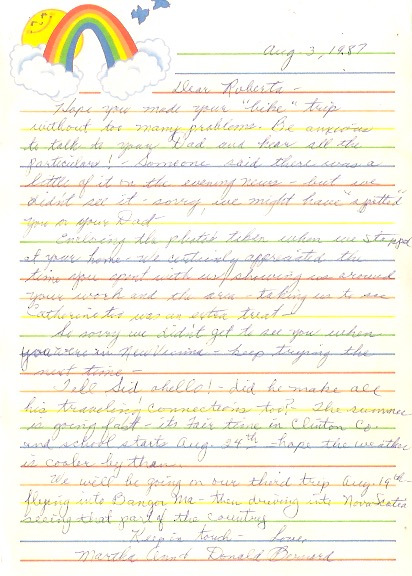 Aug 3, 1987
Dear Roberta -
Hope you made your "bike" trip
without too many problems. Be anxious
to talk to your Dad and hear all the
particulars! - Someone said there was a
little of it on the evening news - but we
didn't see it - sorry, we might have "spotted"
you or your Dad
Enclosing the photos taken when we stopped
at your home - We certainly appreciated the
time you spent with us/showing us around
your work and the area - taking us to see
Catherine too was an extra treat -
So sorry we didn't get to see you when
you were in New Vienna - keep trying the
next time -
Tell Sid ohello! - did he make all
his traveling connections too? The summer
is going fast - its fair time in Clinton Co.
and school starts Aug. 24th - hope the weather
is cooler by than.
We will be going on our third trip Aug. 19th -
flying into Bangor Ma - then driving into Nova Scotia
seeing that part of the country
Keep in touch - Love,
Martha and Donald Bernard